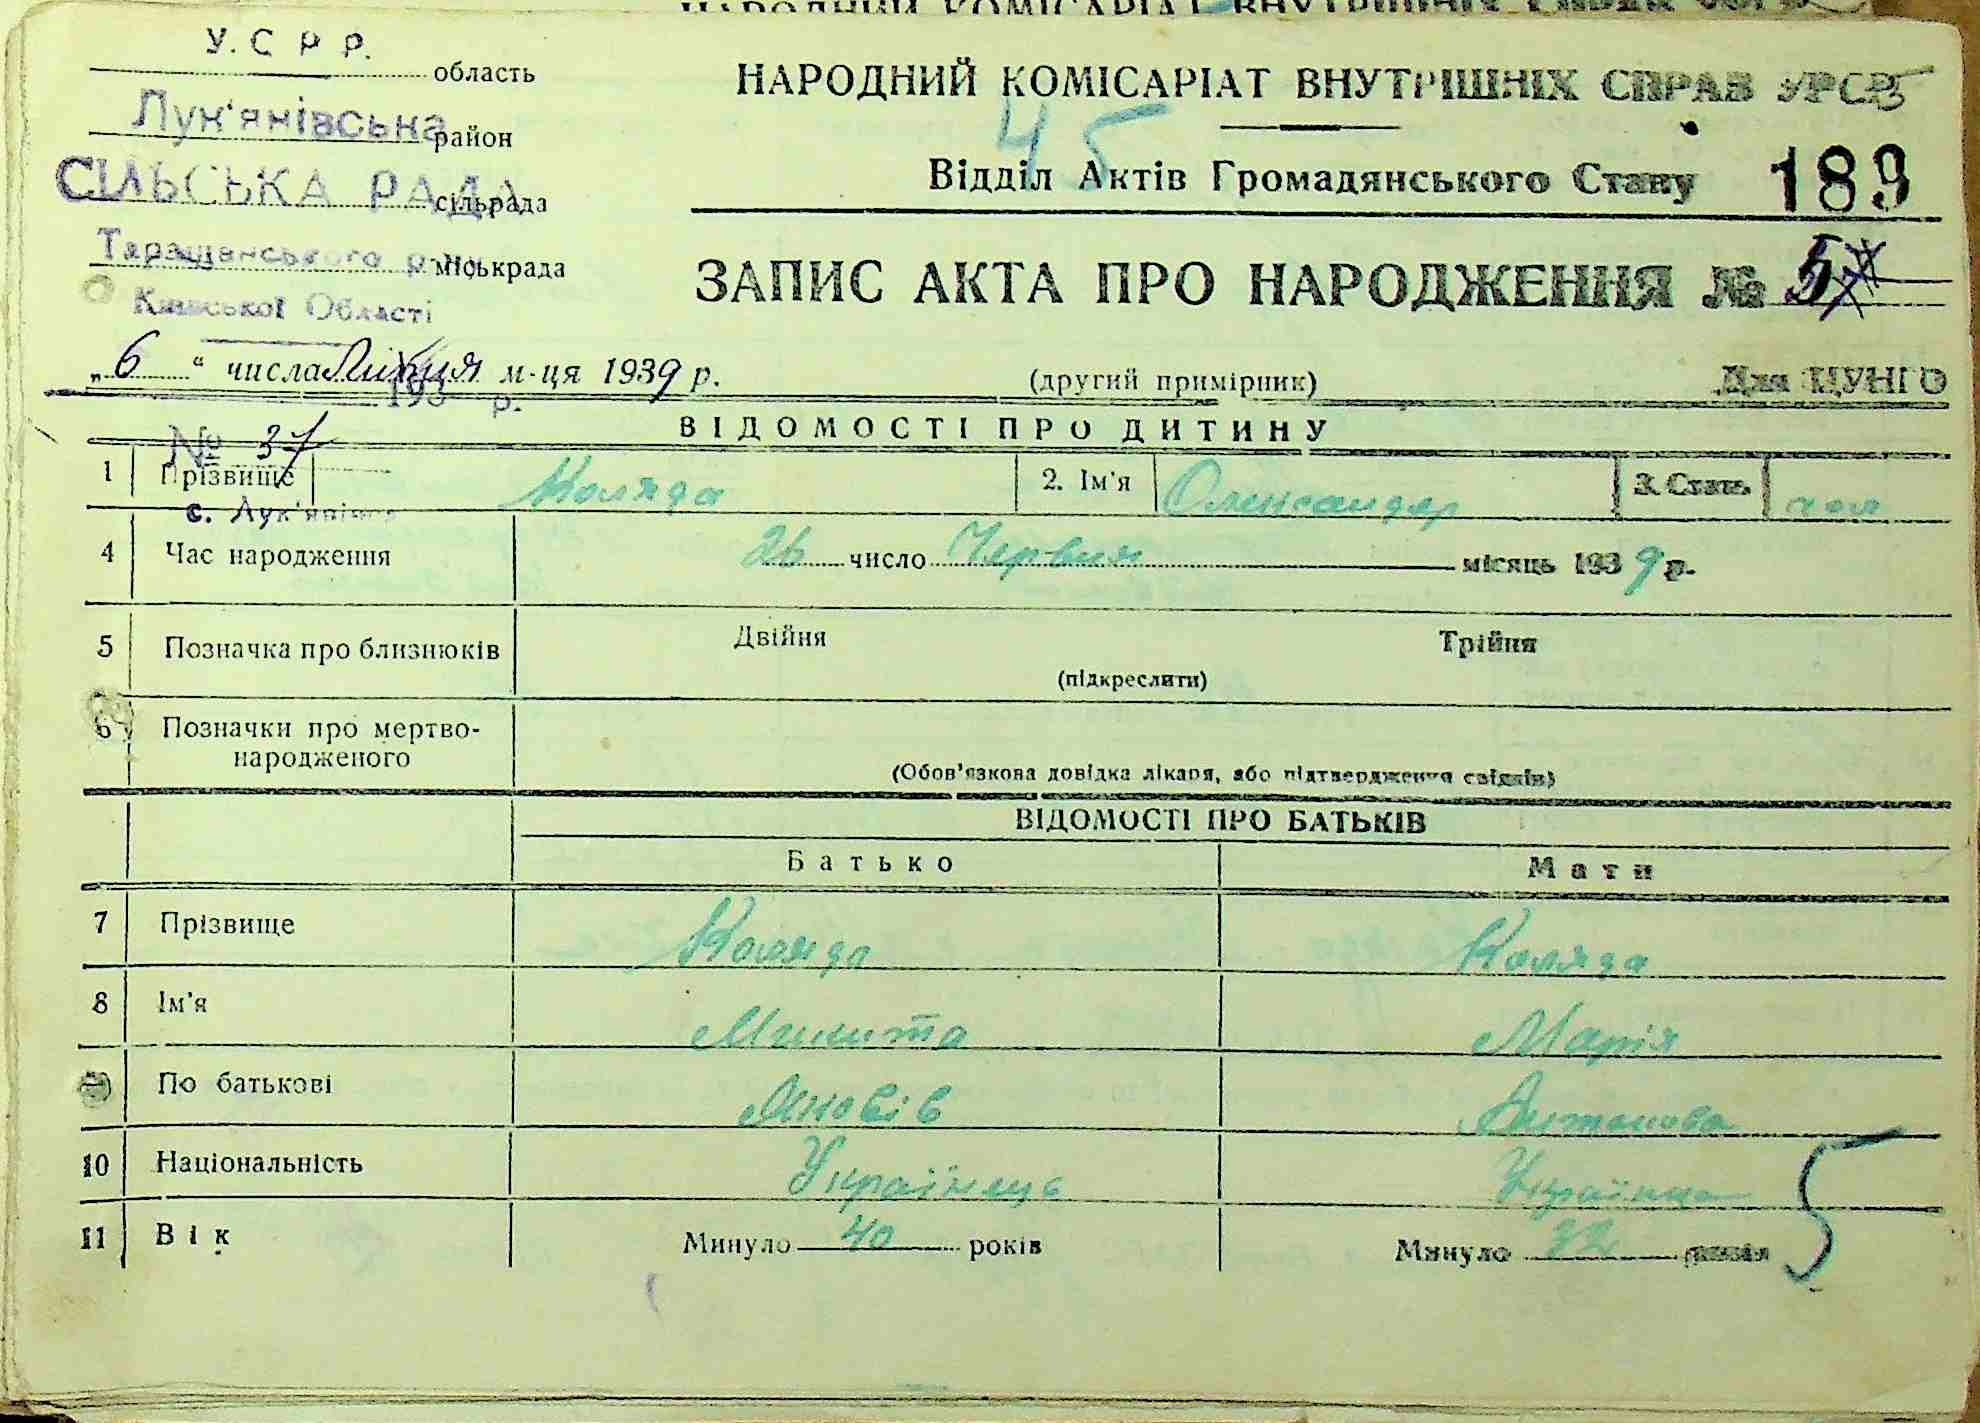 У.С Р Р.
область
Лук'янівська
район
СІЛЬСЬКА РАДА
сільрада
Таращанського р-ну
міськрада
Київської Області
НАРОДНИЙ КОМІСАРІАТ ВНУТРІШНІХ СПРАВ УРСР
45
Відділ Актів Громадянського Стану 189
ЗАПИС АКТА ПРО НАРОДЖЕННЯ №
„ 6 “ числа Липця м-ця 1939 р.
193 р.
(другий примірник)
Для ЦУНГО
№ 37
с. Лук'янівка
ВІДОМОСТІ ПРО ДИТИНУ
1 Прізвище Коляда 2. Ім'я Олександр 3. Стать чол
4 Час народження 26 число Червня місяць 1939 р.
5 Позначка про близнюків Двійня Трійня
(підкреслити)
6 Позначки про мертво-
народженого
(Обов'язкова довідка лікаря, або підтвердження свідків)
ВІДОМОСТІ ПРО БАТЬКІВ
Батько Мати
7 Прізвище Коляда Коляда
8 Ім'я Микита Марія
9 По батькові Яковів Антонова
10 Національність Українець Українка
11 Вік Минуло 40 років Минуло 32 років
5